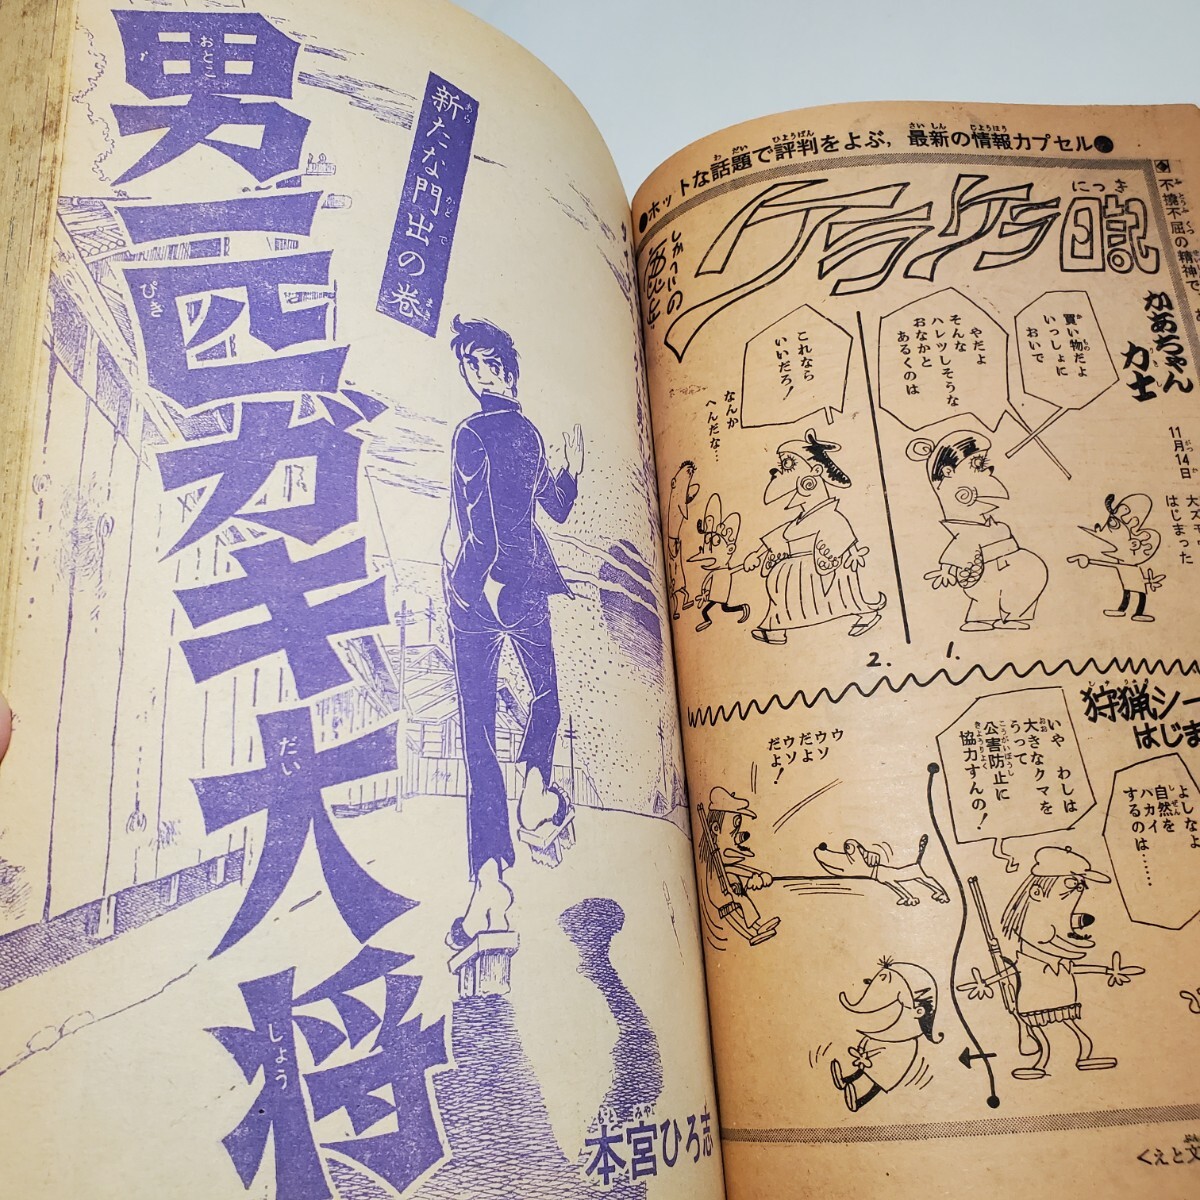 男一匹ガキ大将
おとこ
ぴき
だい
しょう
新たな門出の巻
あら
かどで
まき
本宮ひろ志
もとみや
●ホットな話題で評判をよぶ,最新の情報カプセル●
わだい
ひょうばん
さいしん
じょうほう
ケラケラ日記
にっき
不撓不屈の精神で、
かあちゃん
力士
11月14日
はじまった
買い物だよ
いっしょに
おいで
やだよ
そんな
ハレツしそうな
おなかと
あるくのは
これなら
いいだろ!
なんか
へんだな…
1.
2.
狩猟シー
はじま
よしなよ
自然を
ハカイ
するのは……
いや わしは
大きなクマを
うって
公害防止に
協力すんの!
ウソ
ウソ
だよ
だよ!
くえと文